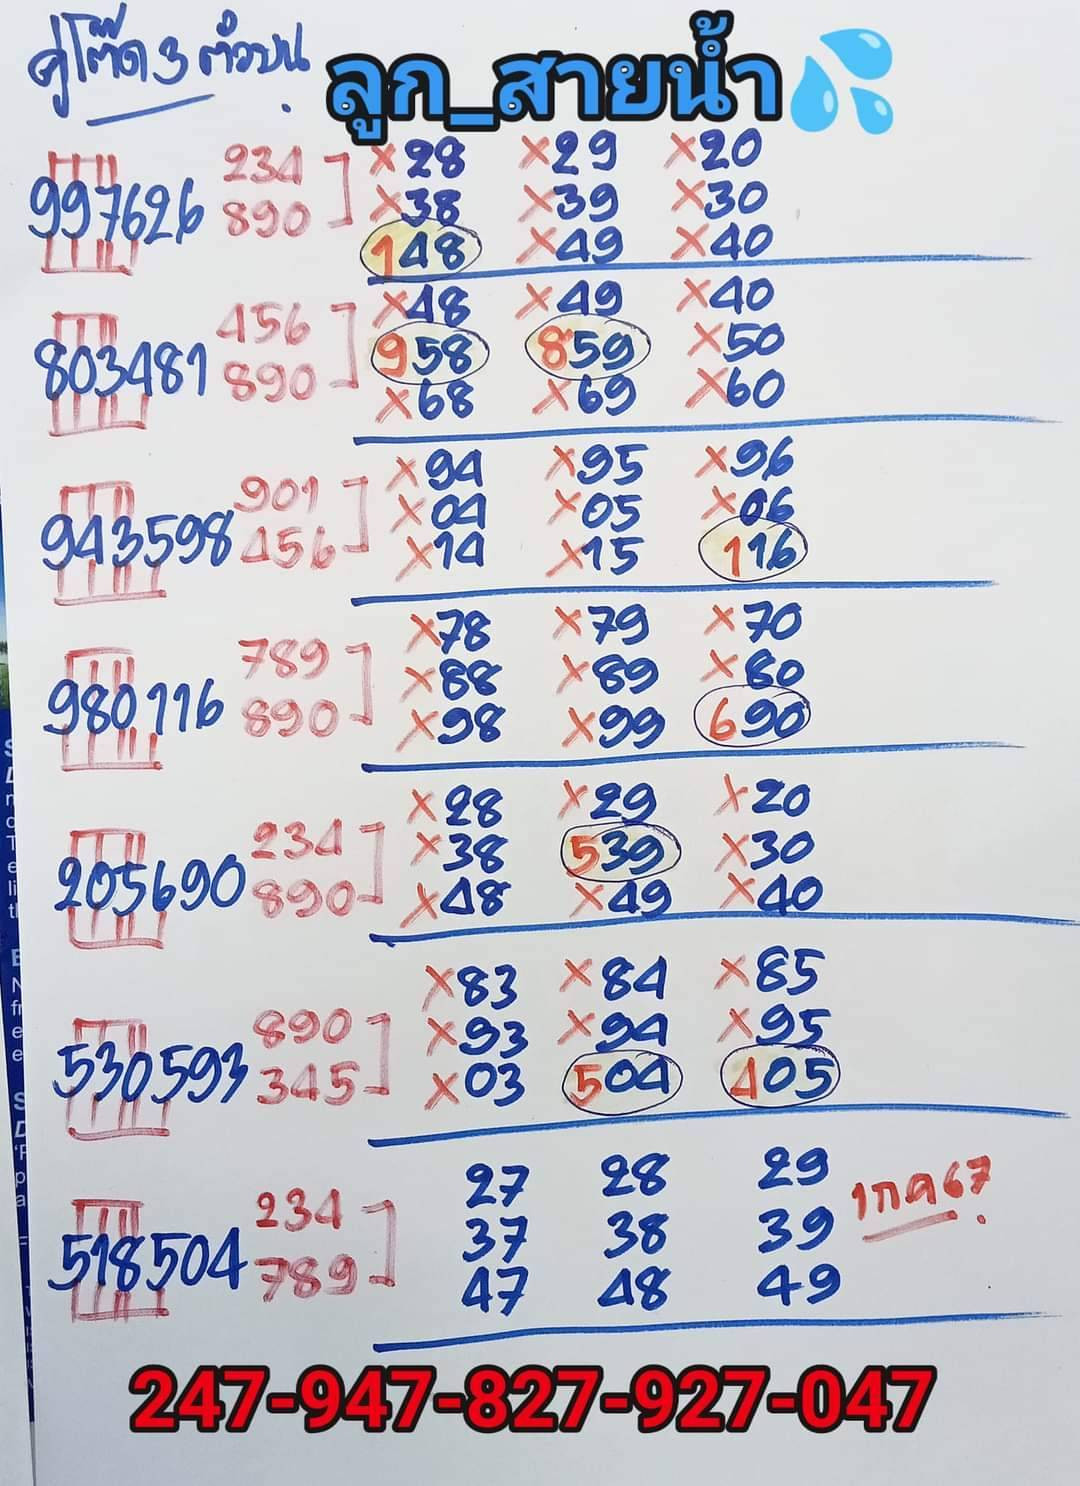 คู่โต๊ด 3 ตัวบน
ลูก_สายน้ำ
997626 234 890 ×28 ×29 ×20
×38 ×39 ×30
148 ×49 ×40
803481 456 890 ×48 ×49 ×40
958 859 ×50
×68 ×69 ×60
943598 901 456 ×94 ×95 ×96
×04 ×05 ×06
×14 ×15 116
980116 789 890 ×78 ×79 ×70
×88 ×89 ×80
×98 ×99 690
205690 234 890 ×28 ×29 ×20
×38 539 ×30
×48 ×49 ×40
530593 890 345 ×83 ×84 ×85
×93 ×94 ×95
×03 504 405
518504 234 789 27 28 29
37 38 39
47 48 49
1 กค 67
247-947-827-927-047